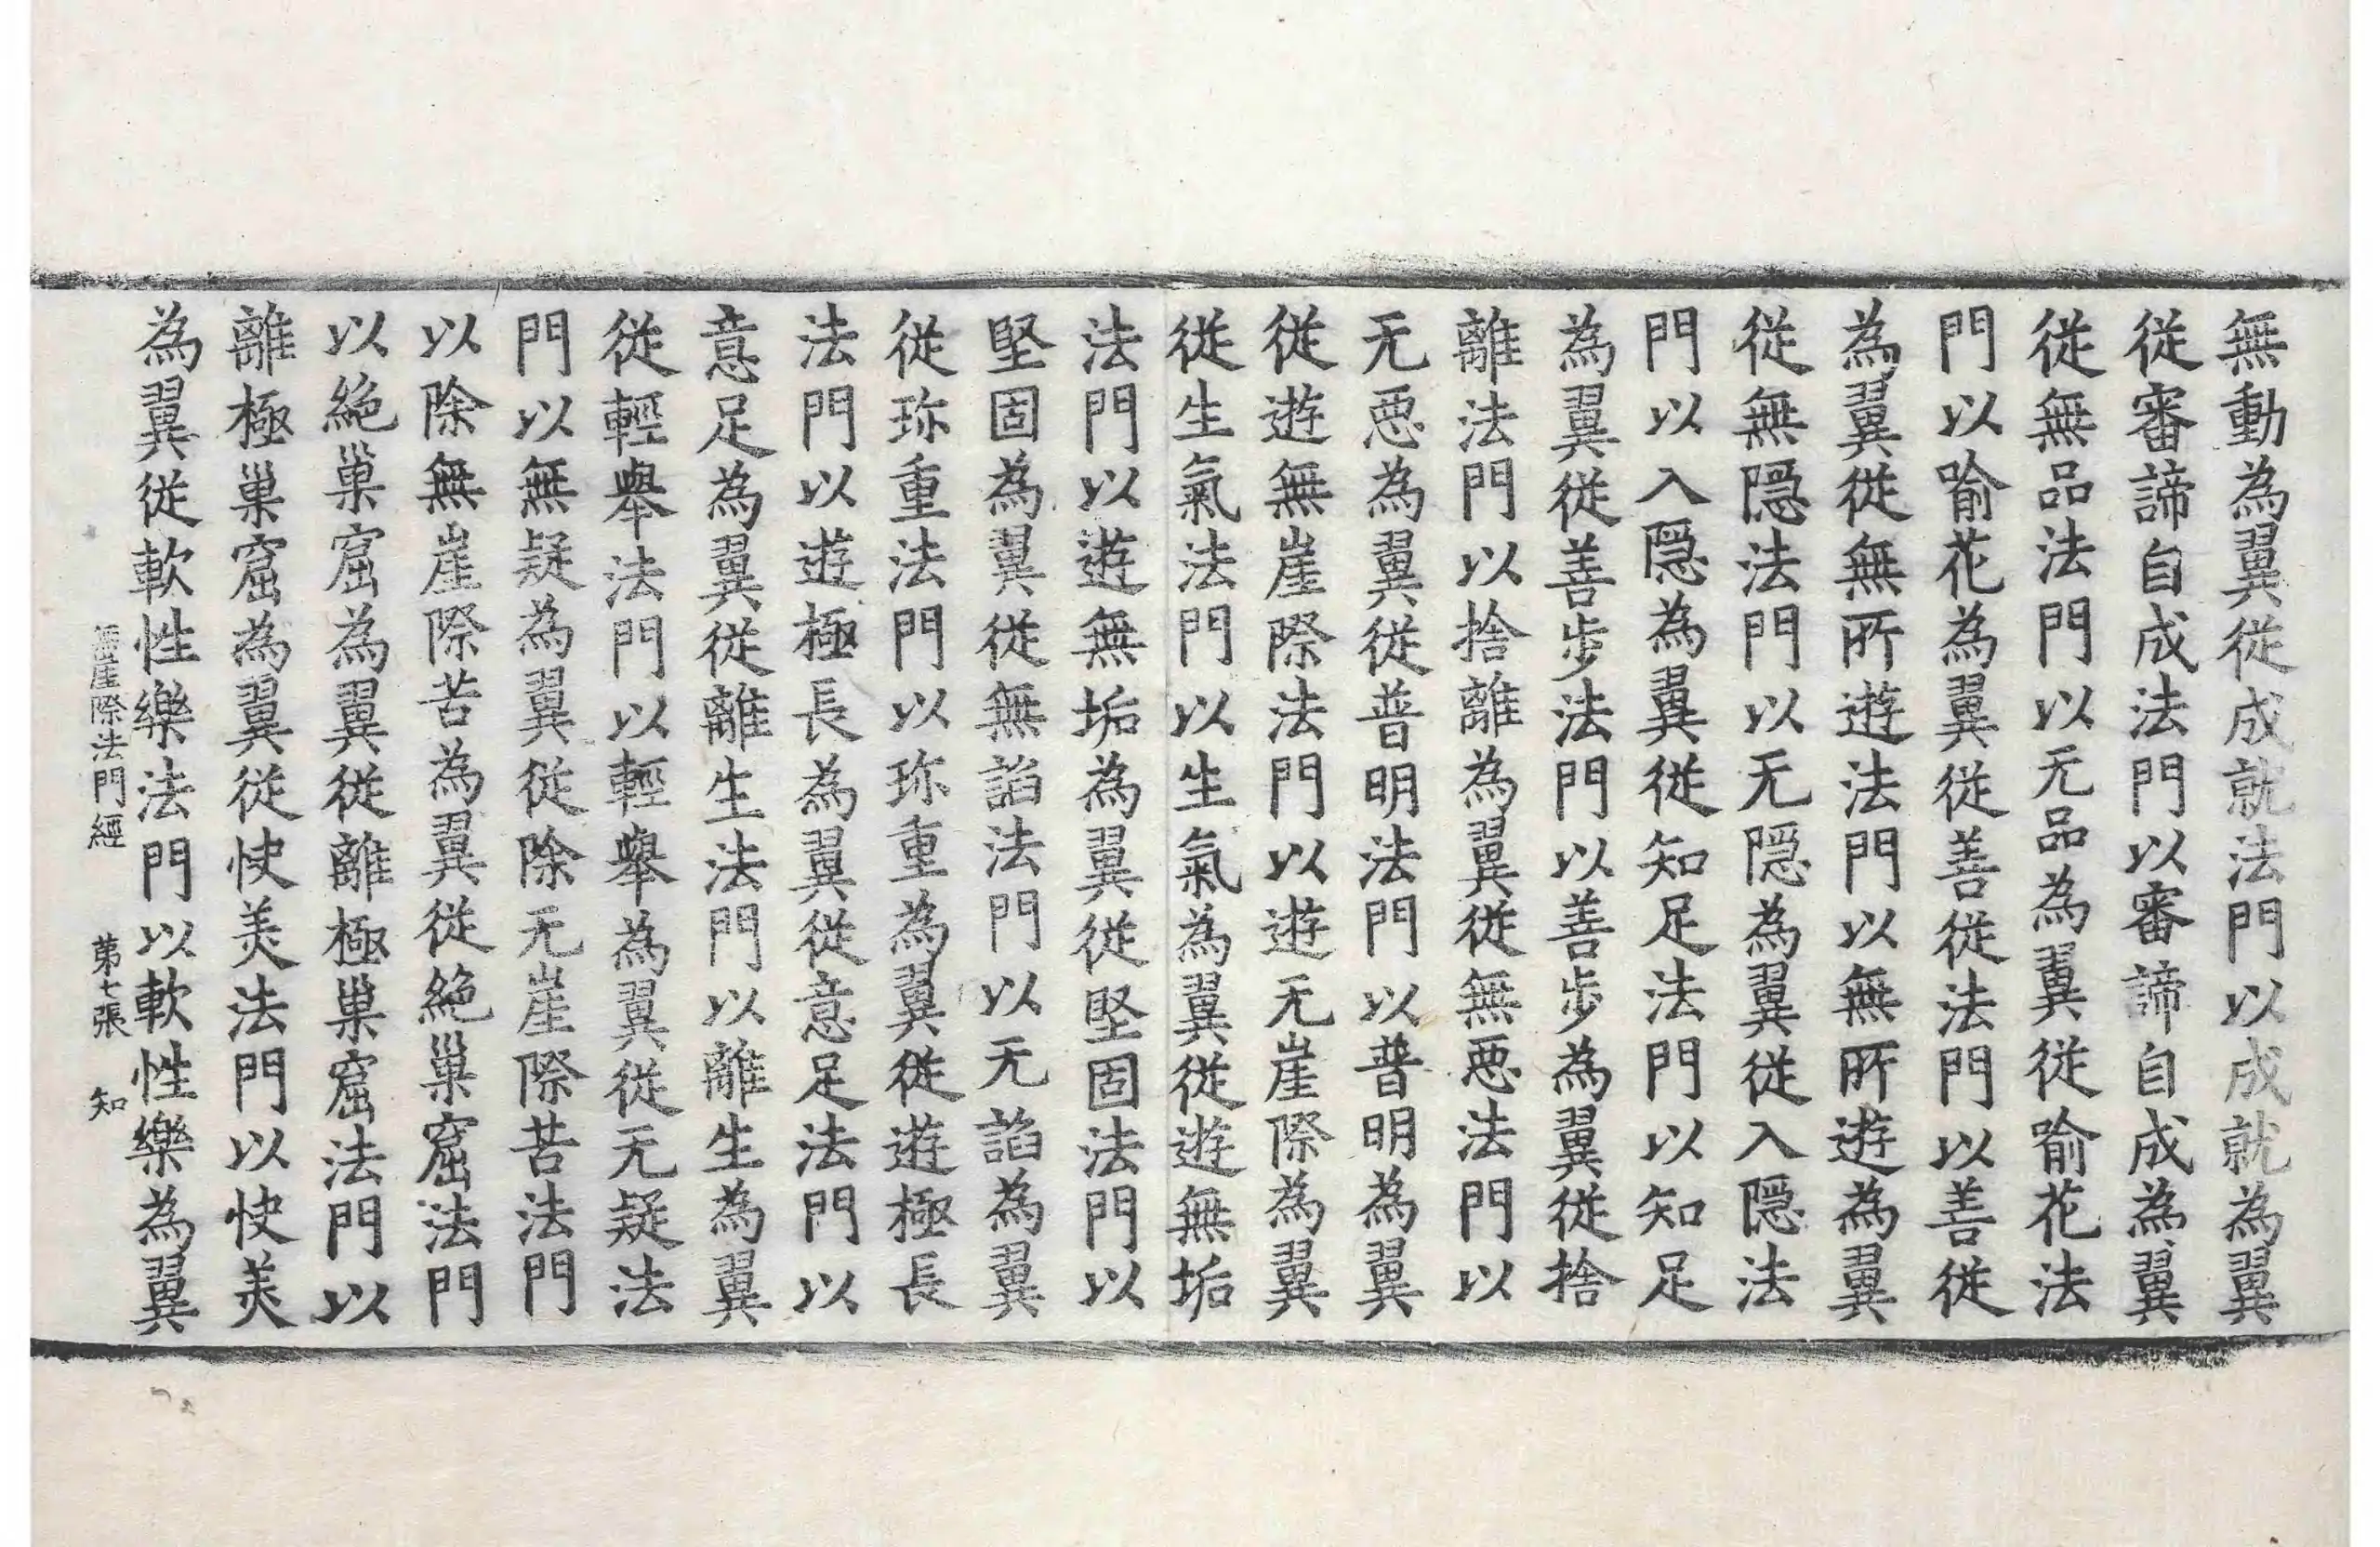 無動為翼從成就法門以成就為翼
從審諦自成法門以審諦自成為翼
從無品法門以无品為翼從喻花法
門以喻花為翼從善從法門以善從
為翼從無所遊法門以無所遊為翼
從無隱法門以无隱為翼從入隱法
門以入隱為翼從知足法門以知足
為翼從善步法門以善步為翼從捨
離法門以捨離為翼從無惡法門以
无惡為翼從普明法門以普明為翼
從遊無崖際法門以遊无崖際為翼
從生氣法門以生氣為翼從遊無垢
法門以遊無垢為翼從堅固法門以
堅固為翼從無諂法門以无諂為翼
從珎重法門以珎重為翼從遊極長
法門以遊極長為翼從意足法門以
意足為翼從離生法門以離生為翼
從輕舉法門以輕舉為翼從无疑法
門以無疑為翼從除无崖際苦法門
以除無崖際苦為翼從絕巢窟法門
以絕巢窟為翼從離極巢窟法門以
離極巢窟為翼從快美法門以快美
為翼從軟性樂法門以軟性樂為翼
無崖際法門經 第七張 知